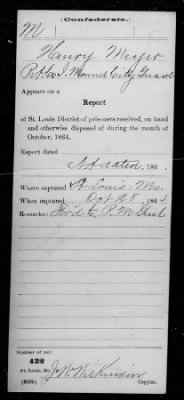 Confederate.
M
Henry Meyer
Pvt Co I. Mound City Guard
Appears on a
Report
of St. Louis District of prisoners received, on hand
and otherwise disposed of during the month of
October, 1864.
Report dated
Not dated, 186 .
Where captured St Louis. Mo.
When captured Oct 28, 186 4.
Remarks: Fwd to P. M. Genl
Number of roll:
432
St. Louis, Mo.
J. W. Wilkinson
Copyist.